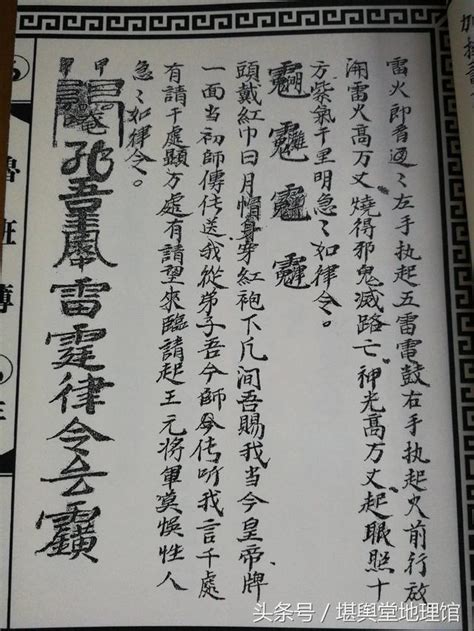 雷火即着過〻左手执起五雷電鼓右手执起火前行放
雷火高万丈燒得邪鬼滅路亡神光高万丈起眼照十
方紫氣千里明急〻如律令。
頭戴紅巾日月帽身穿紅袍下凡间吾賜我当今皇帝牌
一面当初師傳伝送我從弟子吾今師伝听我言千處
有請千處顯方處有請望來臨請起王元将軍莫悞性人
急〻如律令。
雷霆律令
魯班
头条号／堪舆堂地理馆